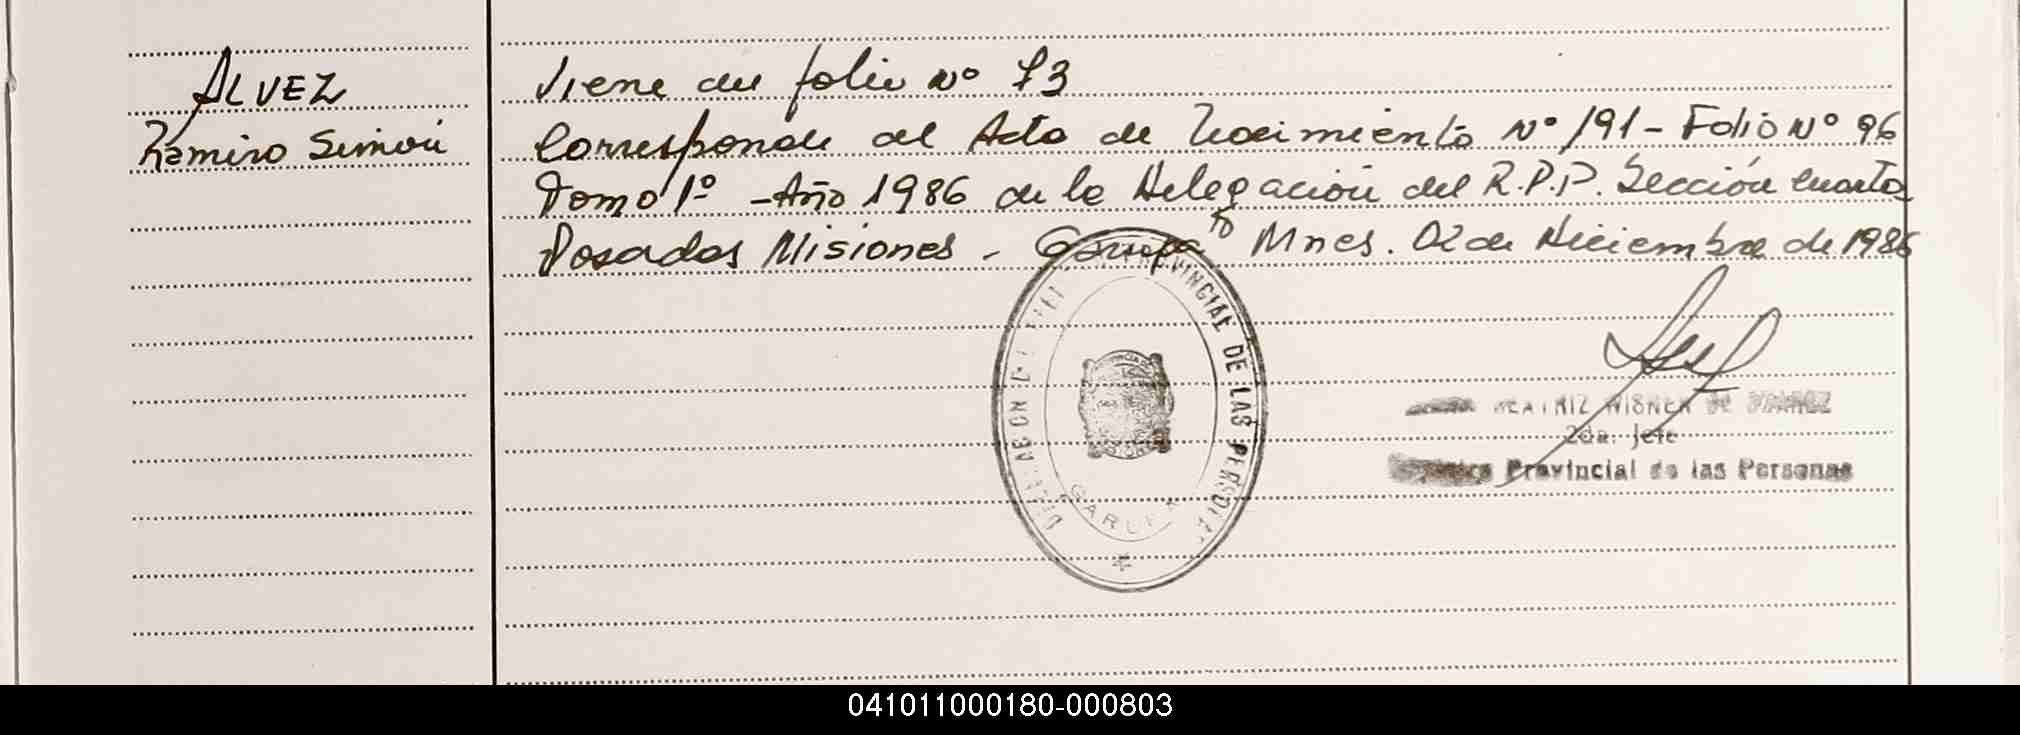 ALVEZ
Ramiro Simón
Viene del folio Nº 73
Corresponde al Acta de Nacimiento Nº 191 - Folio Nº 96
Tomo 1º - Año 1986 de la Delegación del R.P.P. Sección Cuarta
Posadas Misiones - Garupa Mnes. 02 de Diciembre de 1986
PROVINCIAL DE LAS PERSONAS
GARUPA
BEATRIZ WISNER DE
2da. Jefe
Provincial de las Personas
041011000180-000803